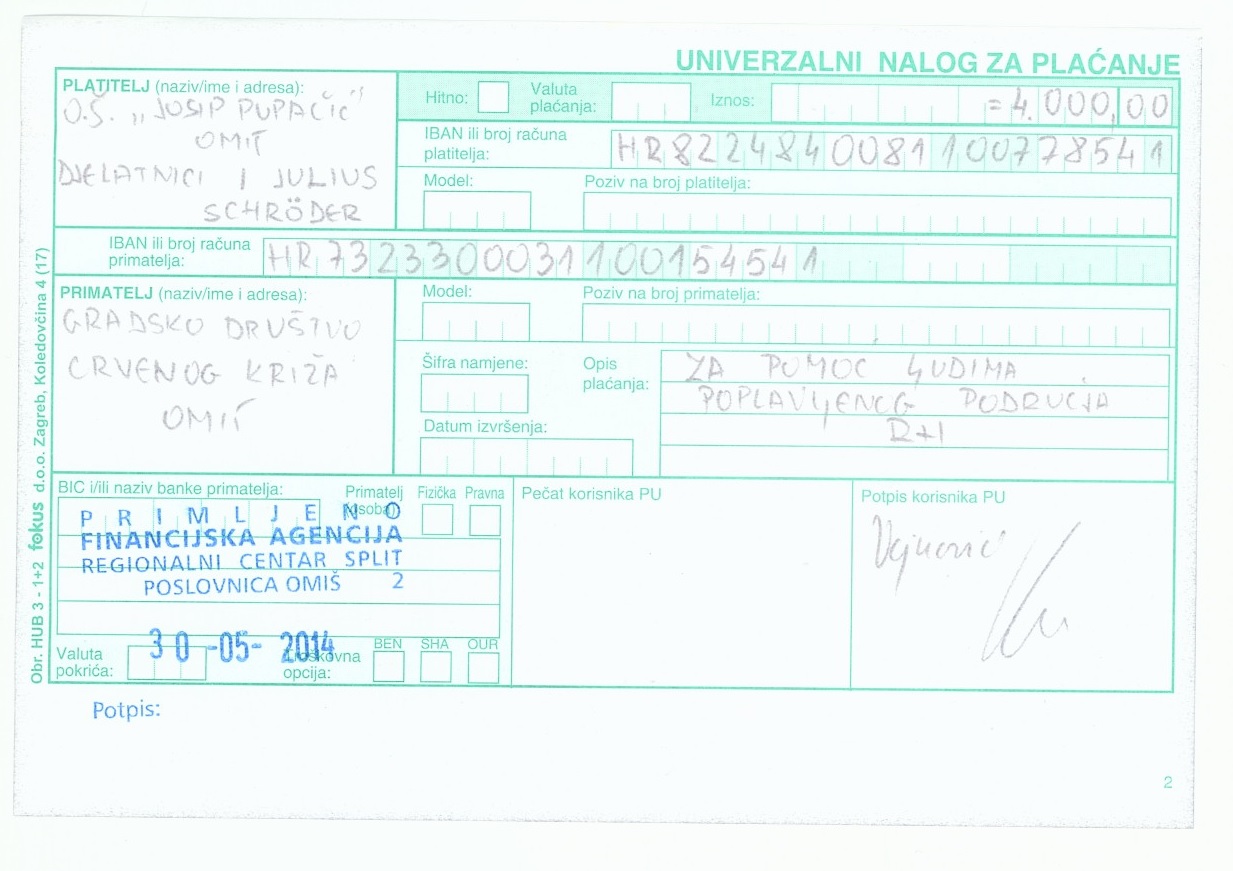 UNIVERZALNI NALOG ZA PLAĆANJE
PLATITELJ (naziv/ime i adresa):
O.Š. „JOSIP PUPAČIĆ"
OMIŠ
DJELATNICI I JULIUS
SCHRÖDER
Hitno:
Valuta plaćanja:
Iznos: =4.000,00
IBAN ili broj računa platitelja: HR8224840081100778541
Model:
Poziv na broj platitelja:
IBAN ili broj računa primatelja: HR7323300031100154541
PRIMATELJ (naziv/ime i adresa):
GRADSKO DRUŠTVO
CRVENOG KRIŽA
OMIŠ
Model:
Poziv na broj primatelja:
Šifra namjene:
Opis plaćanja:
ZA POMOĆ LJUDIMA
POPLAVLJENOG PODRUČJA
Datum izvršenja:
BIC i/ili naziv banke primatelja:
Primatelj (osoba)
Fizička
Pravna
PRIMLJENO
FINANCIJSKA AGENCIJA
REGIONALNI CENTAR SPLIT
POSLOVNICA OMIŠ 2
30-05-2014
Valuta pokrića:
Troškovna opcija:
BEN
SHA
OUR
Pečat korisnika PU
Potpis korisnika PU
Potpis:
Obr. HUB 3 - 1+2 fokus d.o.o. Zagreb, Koledovčina 4 (17)
2